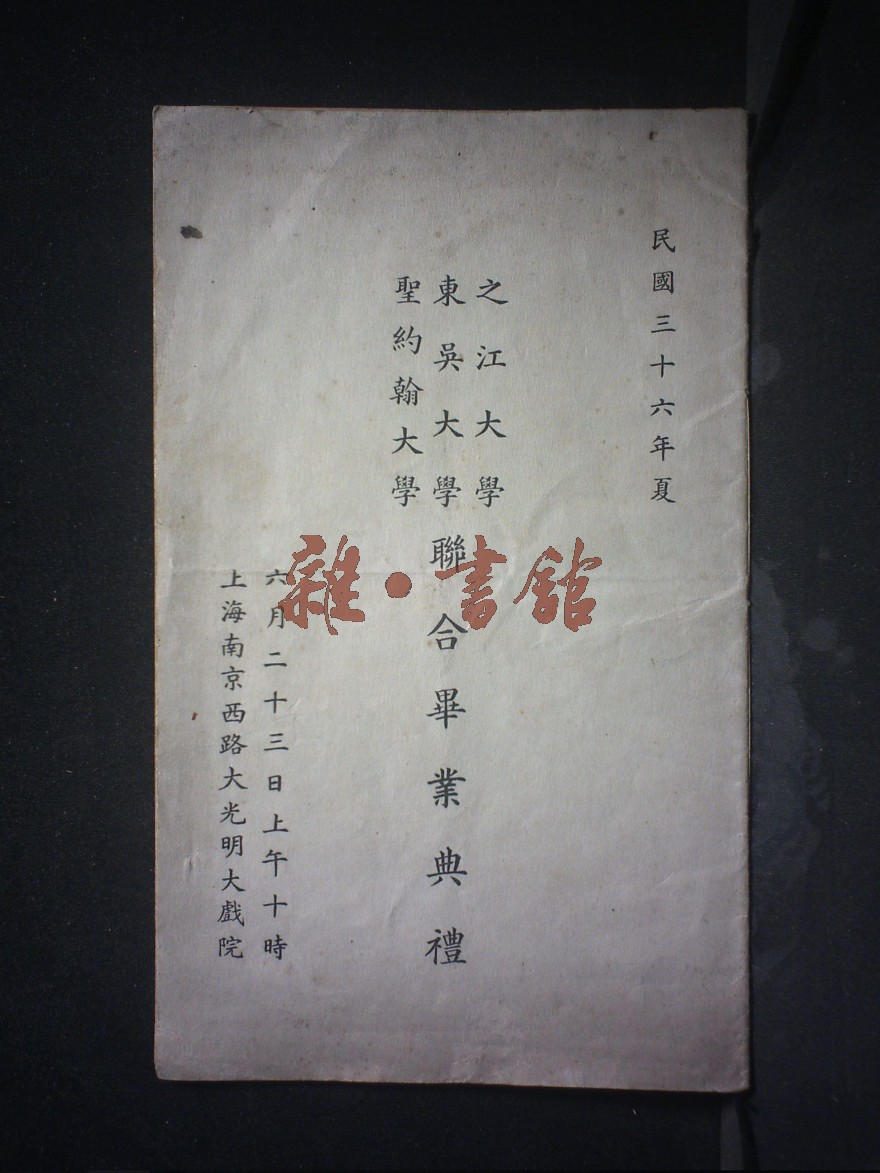 民國三十六年夏
之江大學
東吳大學
聖約翰大學
聯合畢業典禮
六月二十三日上午十時
上海南京西路大光明大戲院
雜·書館